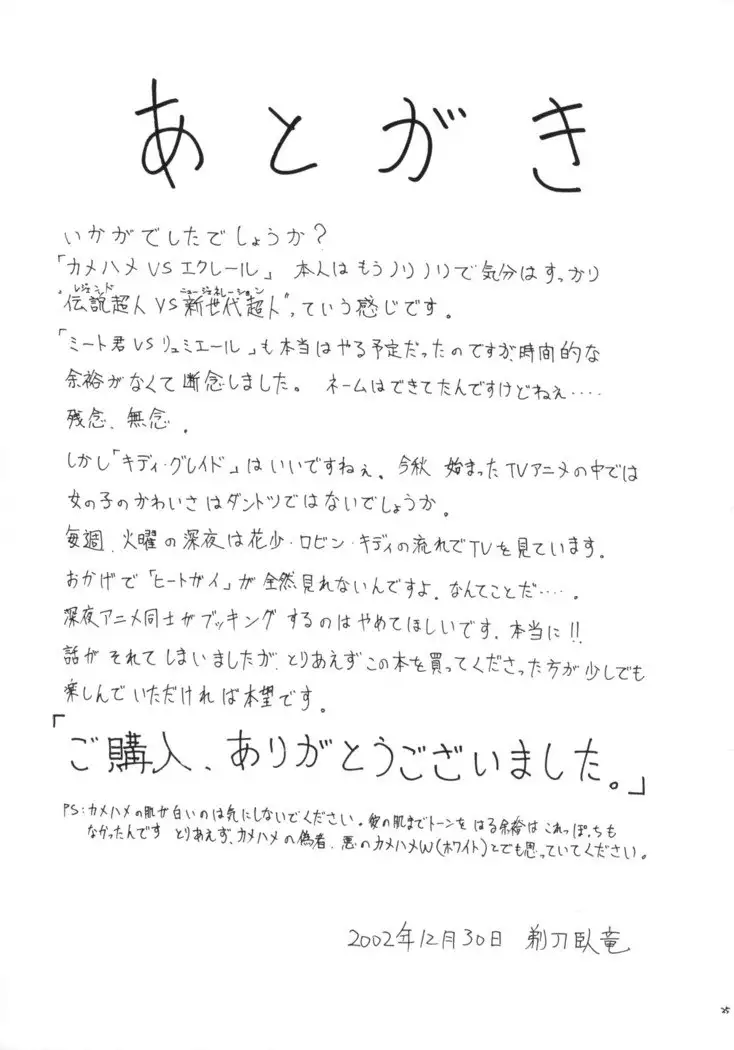 あとがき
いかがでしたでしょうか?
「カメハメVSエクレール」 本人はもうノリノリで気分はすっかり
レジェンド ニュージェネレーション
"伝説超人VS新世代超人"っていう感じです。
「ミート君VSリュミエール」も本当はやる予定だったのですが、時間的な
余裕がなくて断念しました。 ネームはできてたんですけどねぇ‥‥
残念、無念。
しかし「キディ・グレイド」はいいですねぇ。今秋 始まったTVアニメの中では
女の子のかわいさはダントツではないでしょうか。
毎週、火曜の深夜は花少・ロビン・キディの流れでTVを見ています。
おかげで「ヒートガイJ」が全然見れないんですよ。なんてことだ‥‥。
深夜アニメ同士がブッキングするのはやめてほしいです、本当に!!
話がそれてしまいましたが、とりあえずこの本を買ってくださった方が少しでも
楽しんでいただければ本望です。
「ご購入、ありがとうございました。」
PS:カメハメの肌が白いのは気にしないでください。彼の肌までトーンをはる余裕はこれっぽっちも
なかったんです とりあえず、カメハメの偽者、悪のカメハメW(ホワイト)とでも思っていてください。
2002年12月30日 剃刀臥竜
25